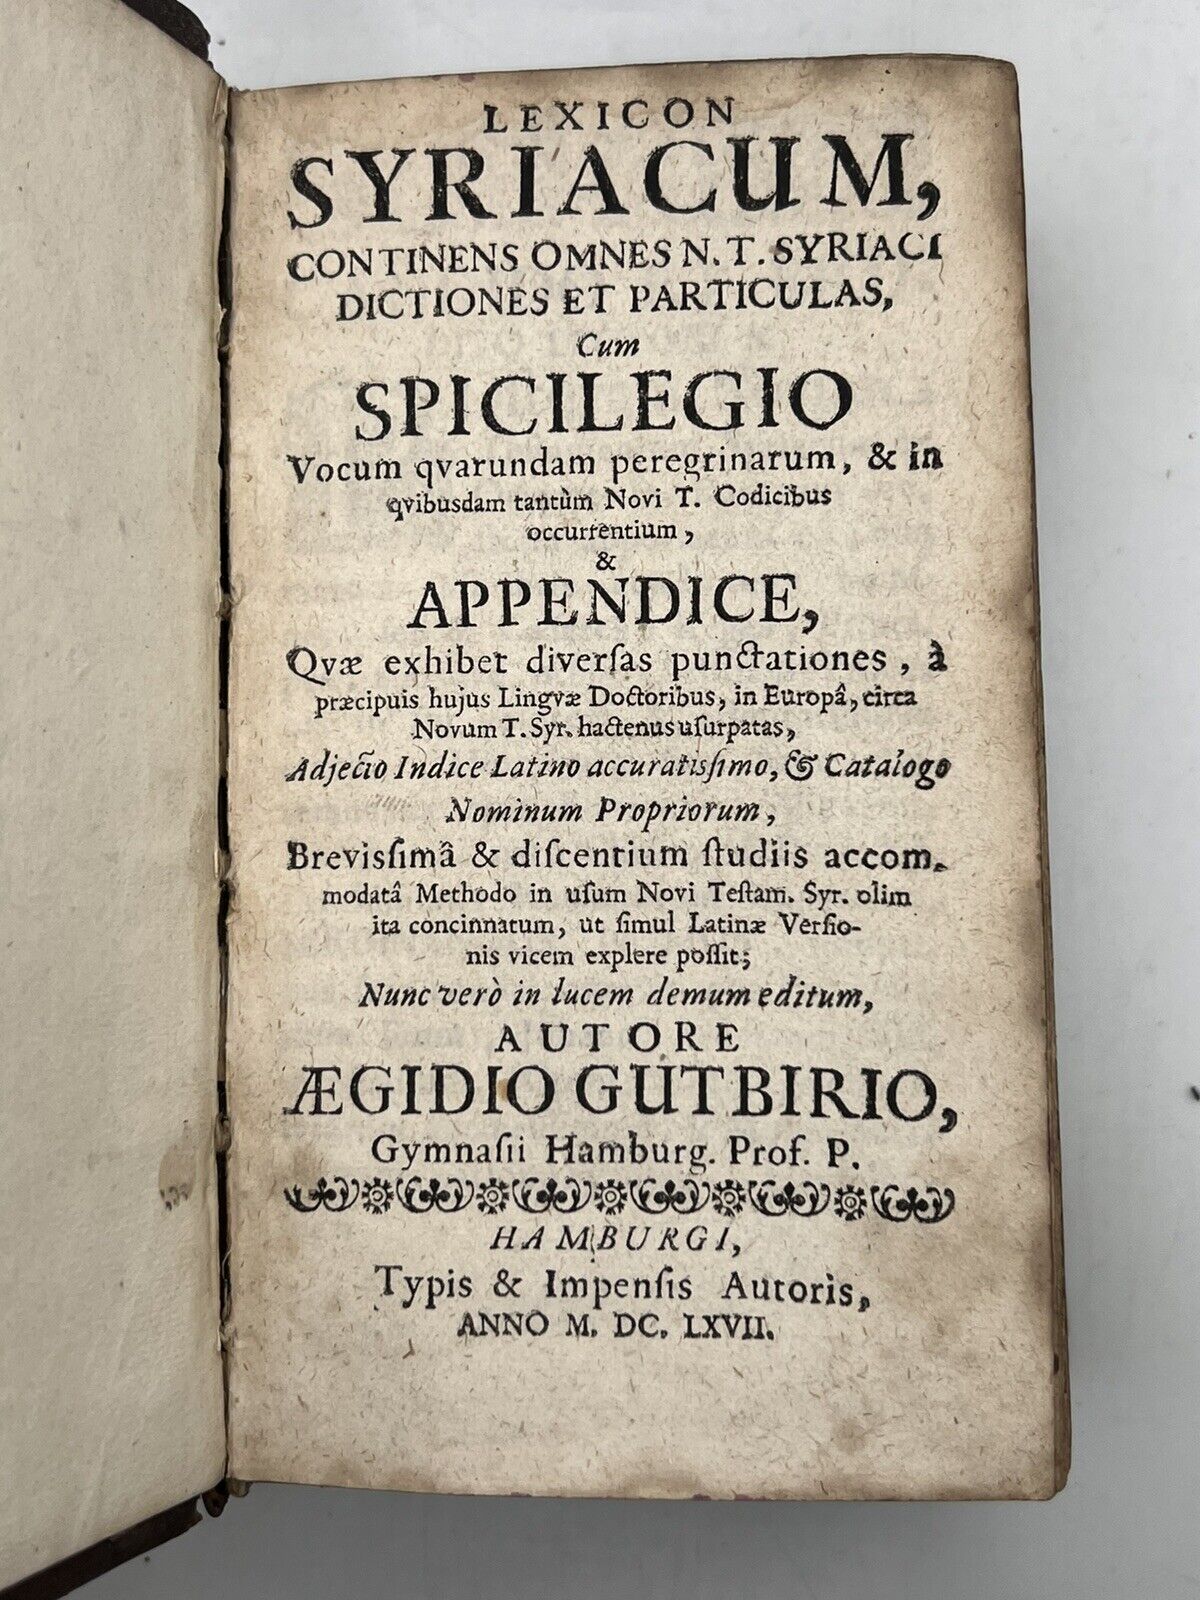 LEXICON
SYRIACUM,
CONTINENS OMNES N. T. SYRIACI
DICTIONES ET PARTICULAS,
Cum
SPICILEGIO
Vocum qvarundam peregrinarum, & in
qvibusdam tantùm Novi T. Codicibus
occurrentium,
&
APPENDICE,
Qvæ exhibet diverſas punctationes, à
præcipuis hujus Lingvæ Doctoribus, in Europâ, circa
Novum T. Syr. hactenus uſurpatas,
Adjecto Indice Latino accuratiſſimo, & Catalogo
Nominum Propriorum,
Breviſſimâ & diſcentium ſtudiis accom-
modatâ Methodo in uſum Novi Teſtam. Syr. olim
ita concinnatum, ut ſimul Latinæ Verſio-
nis vicem explere poſſit;
Nunc verò in lucem demum editum,
AUTORE
ÆGIDIO GUTBIRIO,
Gymnaſii Hamburg. Prof. P.
HAMBURGI,
Typis & Impenſis Autoris,
ANNO M. DC. LXVII.